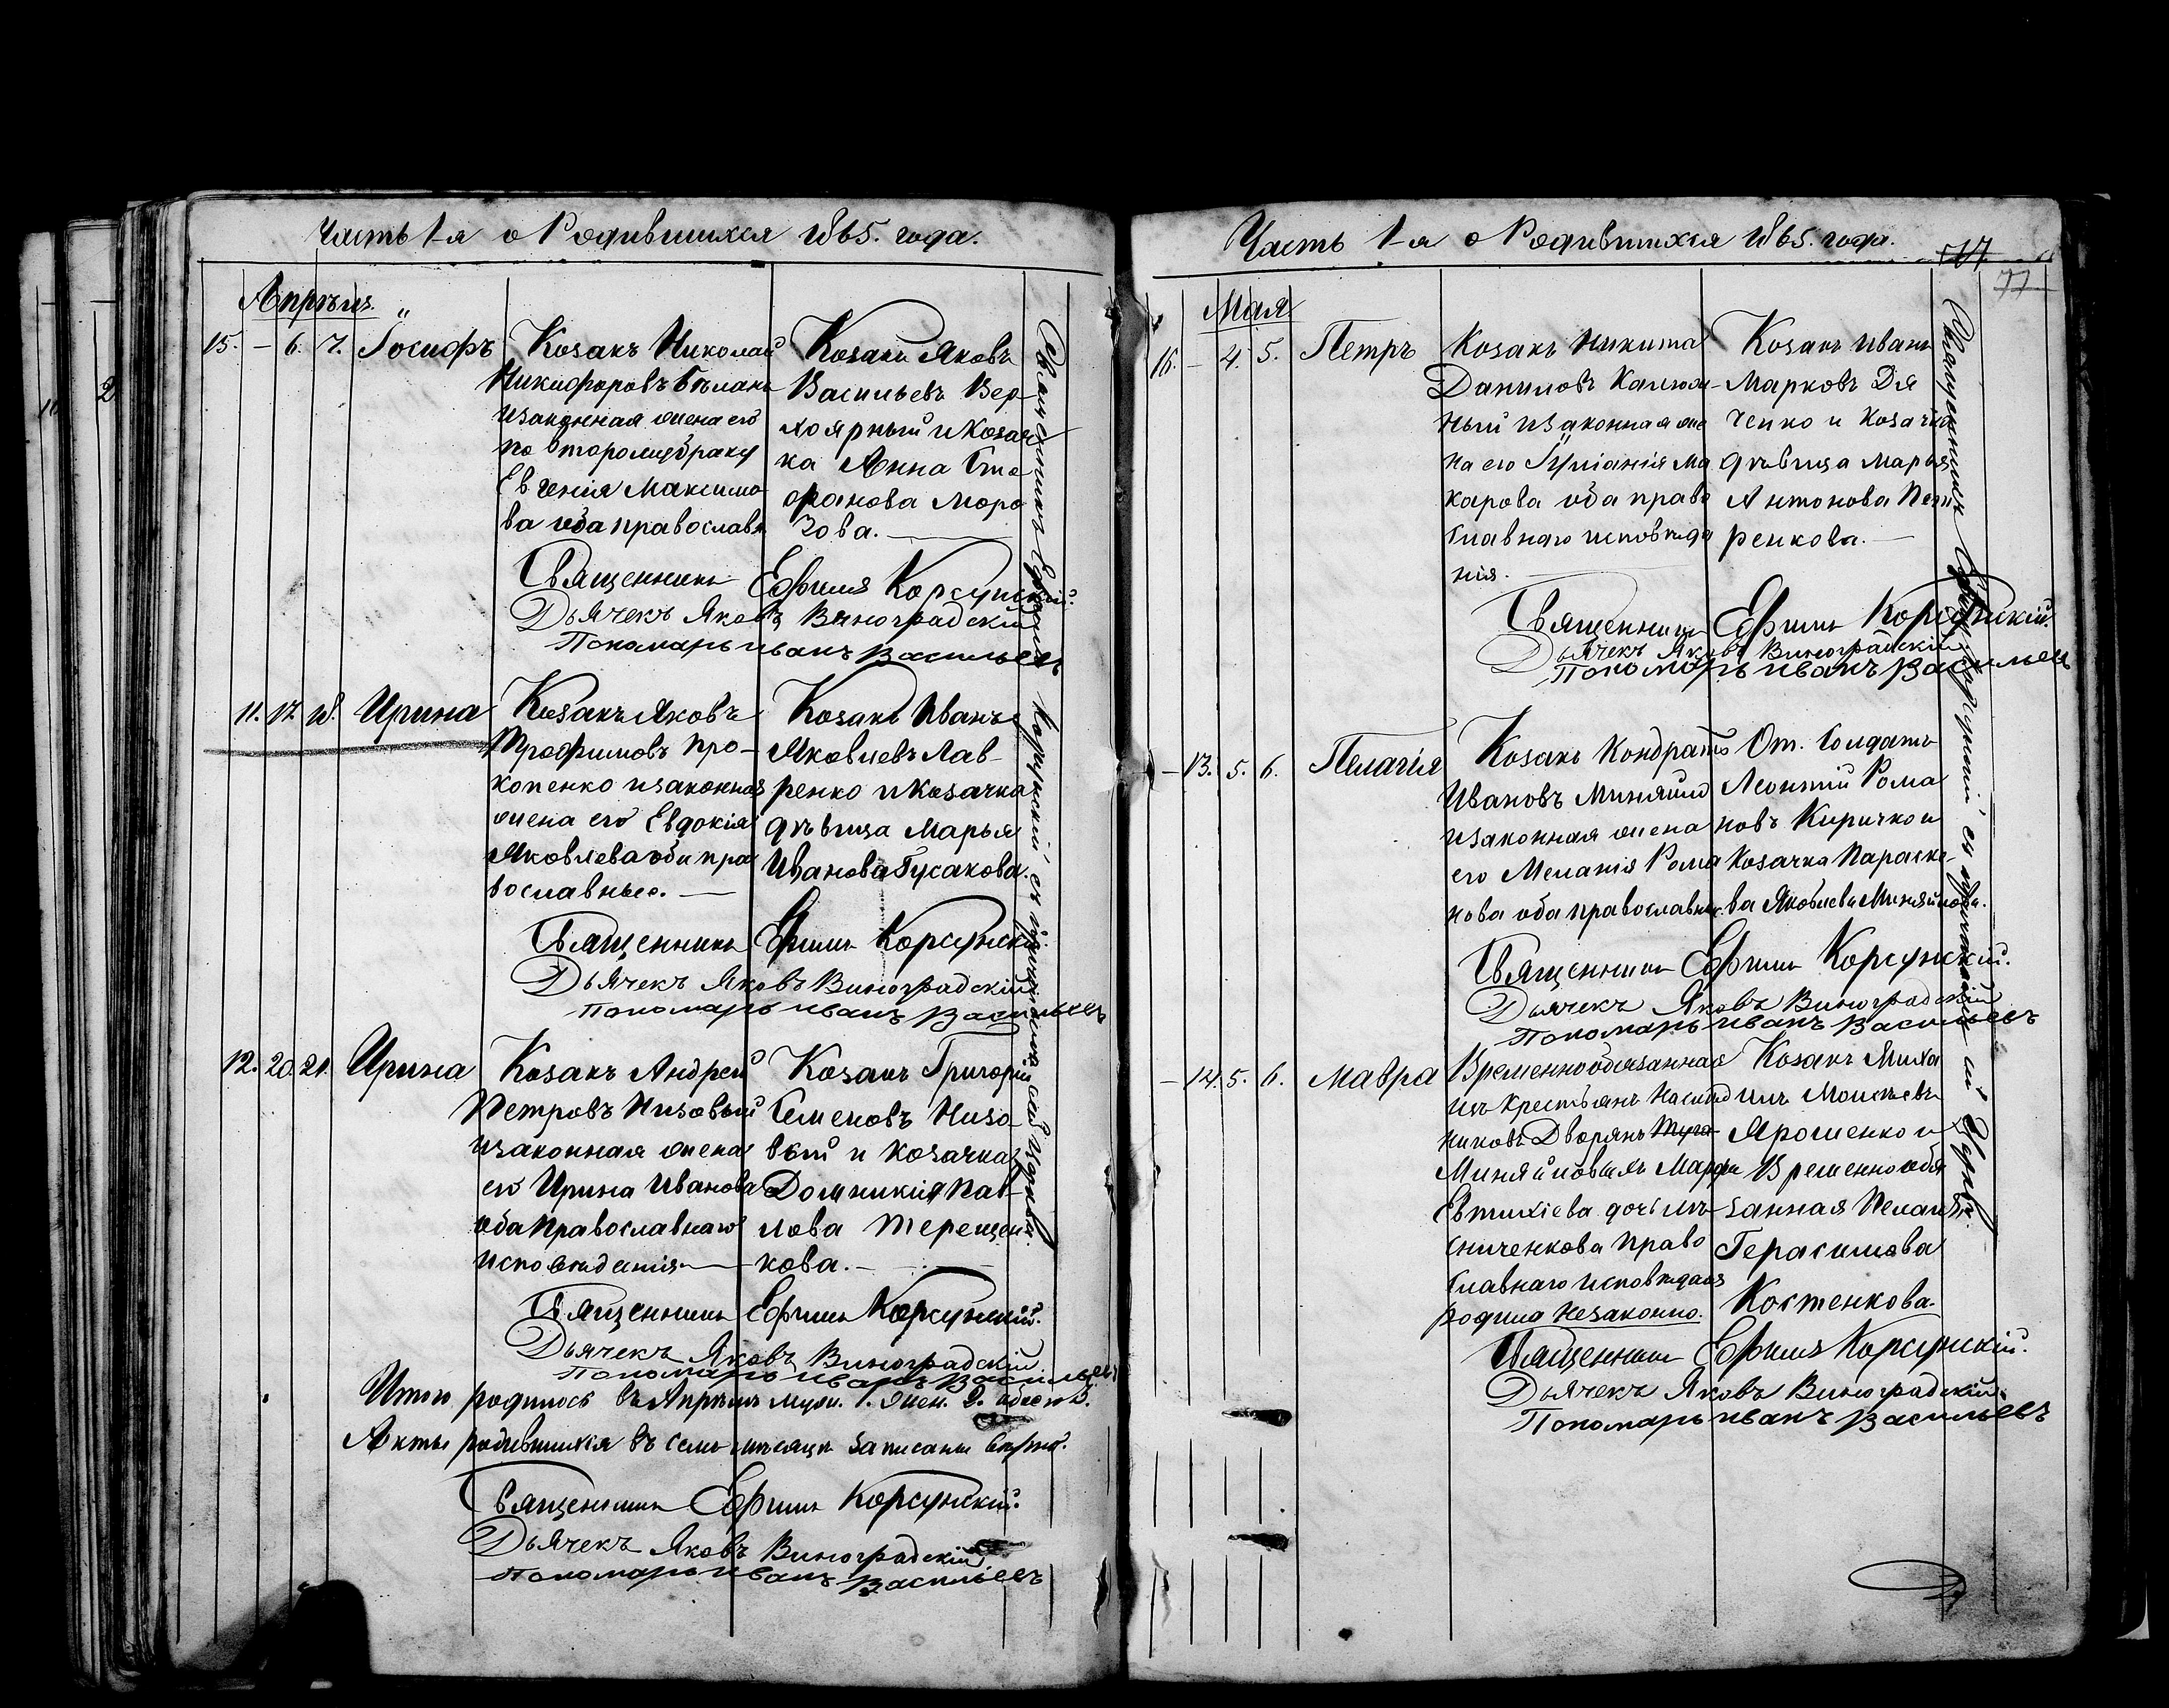 Часть 1-я о Родившихся 1865. года.
Апрѣль.
15. – 6. 7. Іосифъ
Козакъ Николай
Никифоровъ Бѣлань
и законная жена его
по второму браку
Евгенія Максимо
ва оба православн
Козакъ Яковъ
Васильевъ Вер
хоярный и Козач
ка Анна Сте
фанова Моро
зова.
Священникъ Ефимъ Корсунскій.
Дьячекъ Яковъ Виноградскій
Пономарь иванъ Васильевъ
11. 17. 18. Ирина
Козакъ Яковъ
Трофимовъ Про-
копенко и законная
жена его Евдокія
Яковлева оба пра
вославные.
Козакъ Иванъ
Яковлевъ Лав-
ренко и Козачка
дѣвица Марья
Иванова Гусакова.
Священникъ Ефимъ Корсунскій.
Дьячекъ Яковъ Виноградскій
Пономарь иванъ Васильевъ
12. 20. 21. Ирина
Козакъ Андрей
Петровъ Низовый
и законная жена
его Ирина Иванова
оба Православнаго
исповѣданія
Козакъ Григорій
Семеновъ Низо-
вый и козачка
Домникія Пав-
лова Терещен
кова.
Священникъ Ефимъ Корсунскій.
Дьячекъ Яковъ Виноградскій.
Пономарь иванъ Васильевъ
Итого родилось въ Апрѣлѣ муж. 1. жен. 2. обоего 3.
Акты родившихся въ семъ мѣсяцѣ записаны вѣрно.
Священникъ Ефимъ Корсунскій.
Дьячекъ Яковъ Виноградскій
Пономарь иванъ Васильевъ
Священникъ Ефимъ Корсунскій съ причтомъ сей Церкви.
Часть 1-я о Родившихся 1865. года.
77
Мая
16. – 4. 5. Петръ
Козакъ Никита
Даниловъ
ный и законная же
на его Іуліанія Ма
карова оба право
славнаго исповѣда
нія.
Козакъ Иванъ
Марковъ Дя
ченко и Козачка
дѣвица Марья
Антонова
ренкова.
Священникъ Ефимъ Корсунскій.
Дьячекъ Яковъ Виноградскій
Пономарь иванъ Васильевъ
– 13. 5. 6. Пелагія
Козакъ Кондратъ
Ивановъ Миняйло
и законная жена
его Меланія Рома
нова оба православные.
От. Солдатъ
Леонтій Рома
новъ Киричко и
Козачка Параске-
ва Яковлева Миняйлова.
Священникъ Ефимъ Корсунскій.
Дьячекъ Яковъ Виноградскій
Пономарь иванъ Васильевъ
– 14. 5. 6. Мавра
Временнообязанная
изъ крестьянъ Наслѣд
никовъ Дворянъ
Миняйловыхъ Марфа
Евтихіева дочь
сниченкова право
славнаго исповѣданія
родила незаконно.
Козакъ Миха
илъ Моисѣевъ
Ярошенко и
Временнообя
занная Пелагія
Герасимова
Костенкова.
Священникъ Ефимъ Корсунскій.
Дьячекъ Яковъ Виноградскій
Пономарь иванъ Васильевъ
Священникъ Ефимъ Корсунскій съ причтомъ сей Церкви.